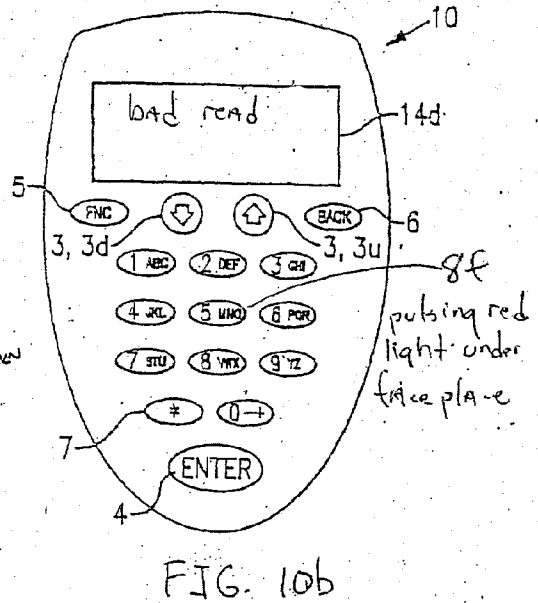 10
bad read
14d
5
FNC
BACK
6
3, 3d
3, 3u
1 ABC
2 DEF
3 GHI
8f
4 JKL
5 MNO
6 PQR
pulsing red
light under
7 STU
8 VWX
9 YZ
7
*
0
ENTER
4
FIG. 10b